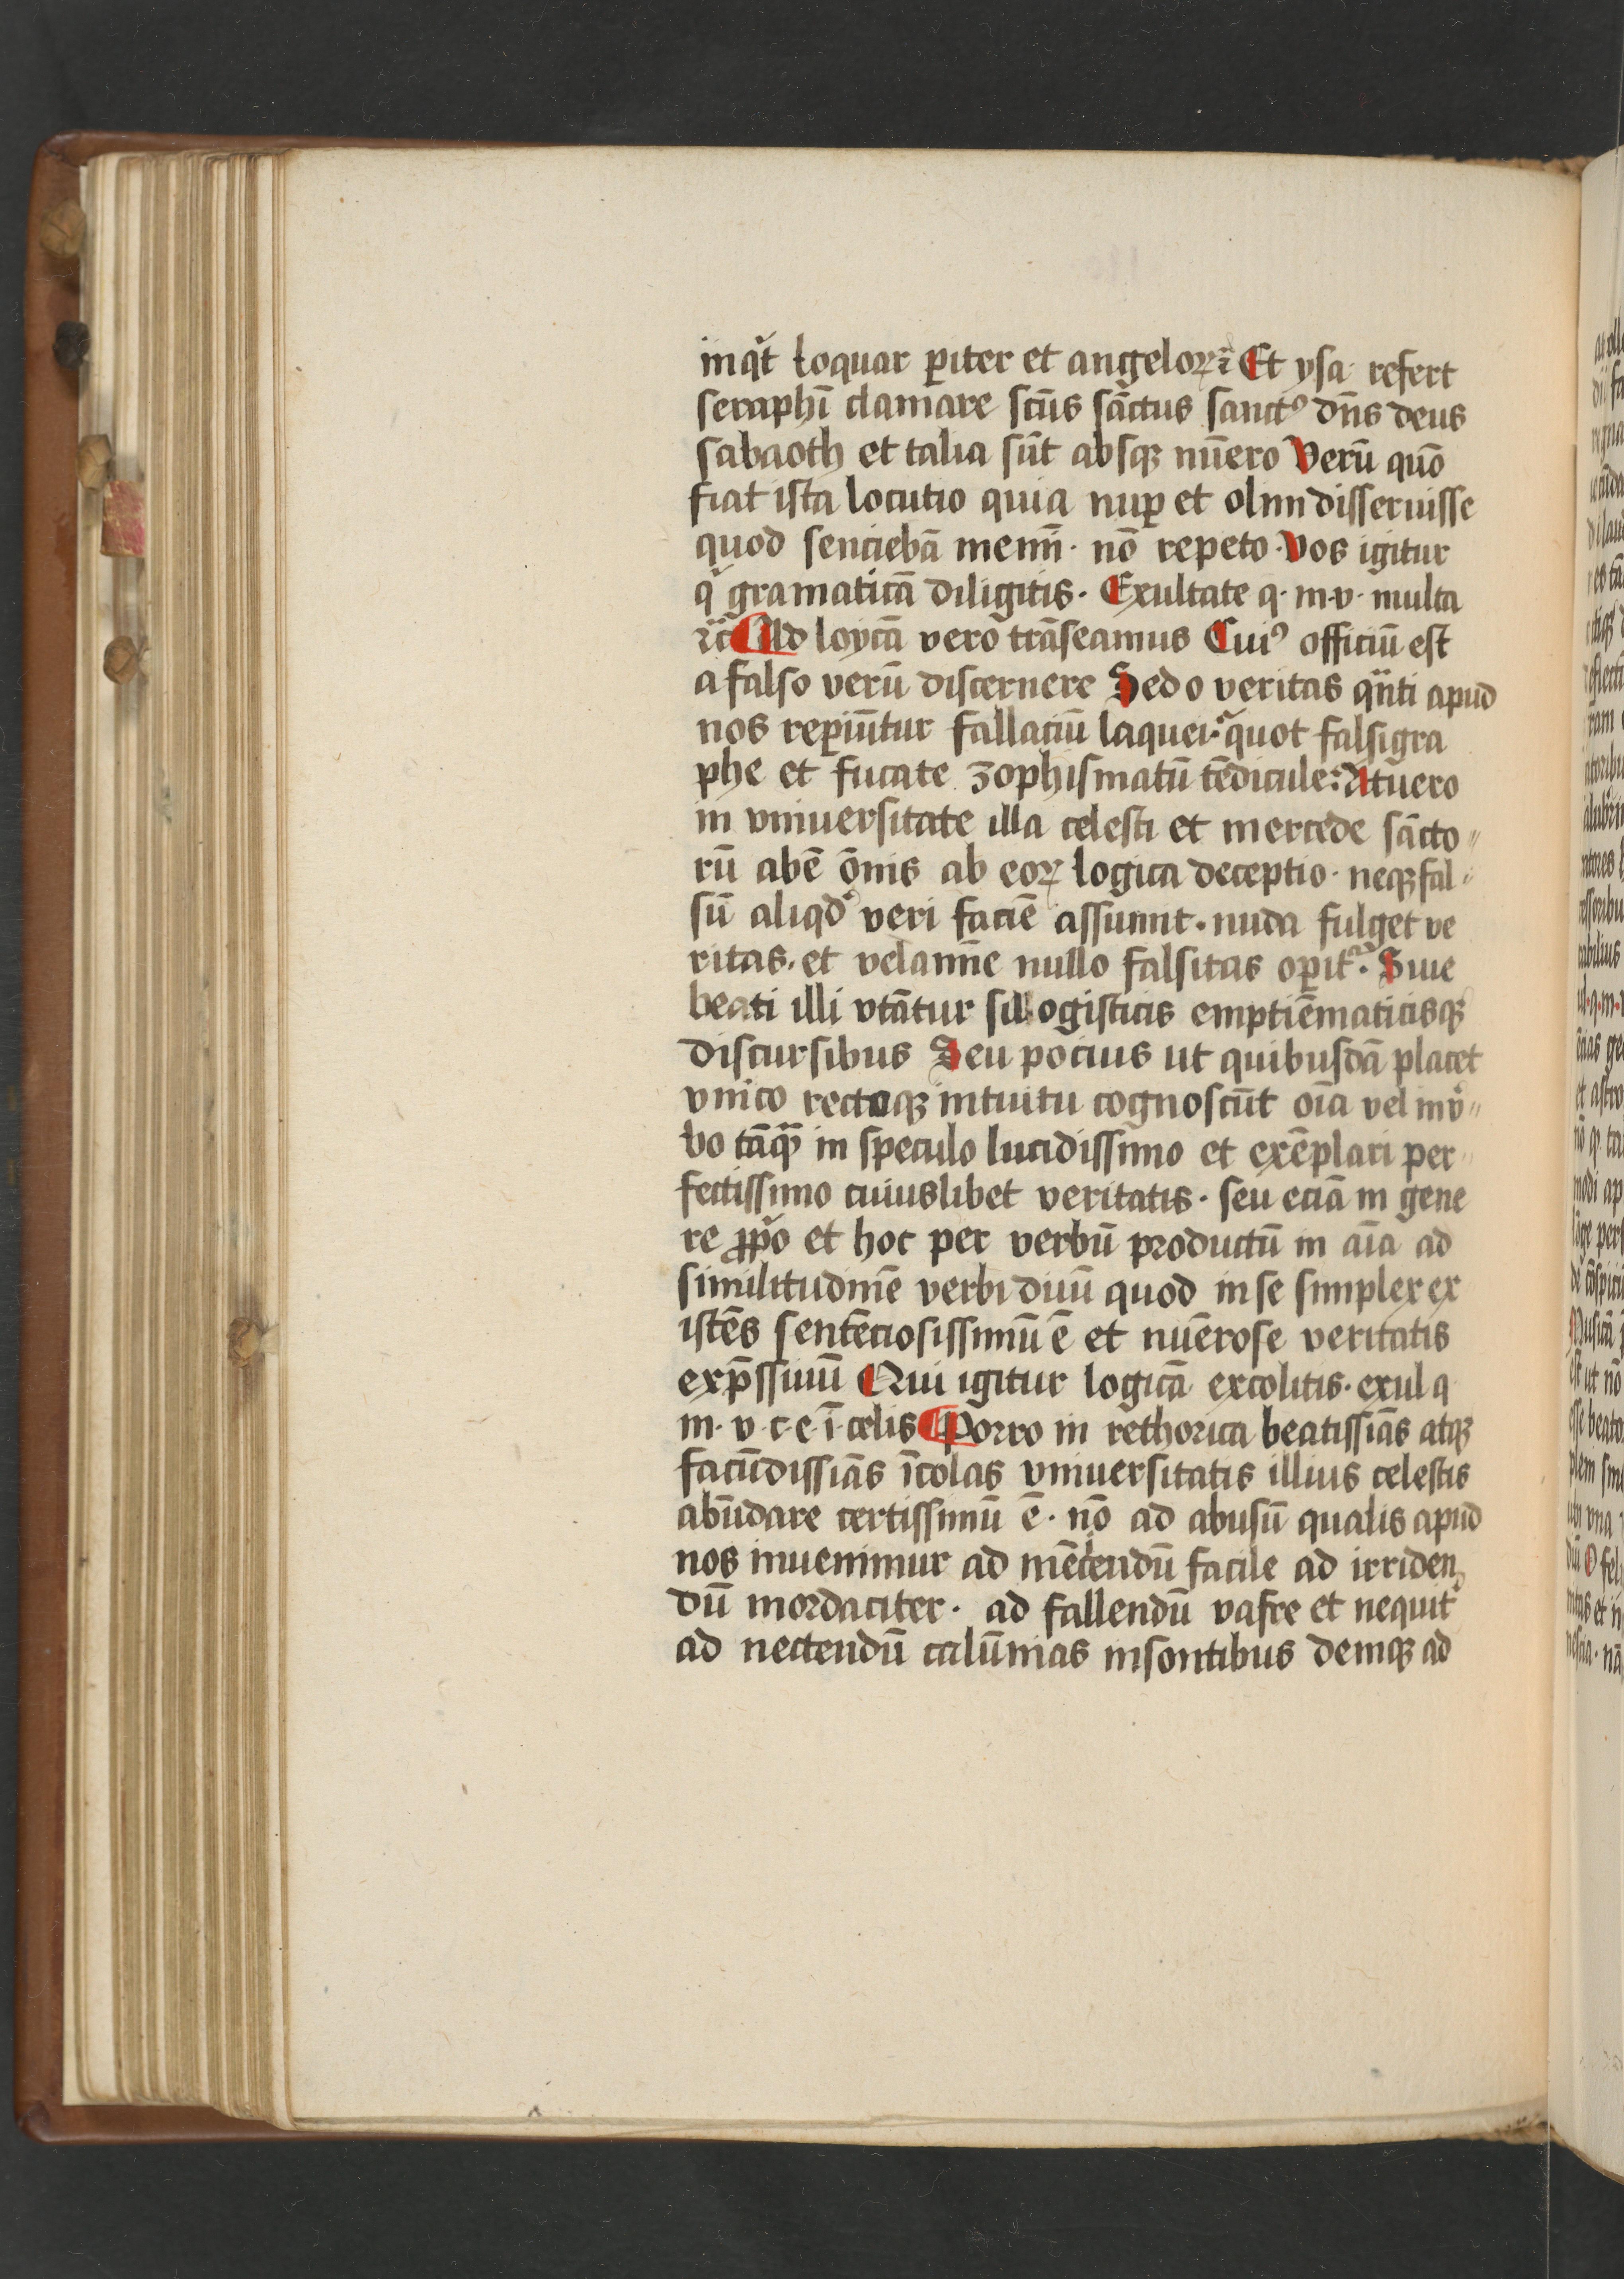 inqͥt loquar ꝑiter et angeloꝝ ⁊ Et ysa refert
seraphī clamare scūs sāctus sanctꝰ dn̄s deus
sabaoth et talia sūt absqꝫ nūero Verū quō
fiat ista locutio quia nuꝑ et olim disseruisse
quod senciebā memī · nō repeto · Vos igitur
qͥ gramaticā diligitis · Exultate q · m · v · multa
⁊c̄ Ad loycā vero trāseamus Cuiꝰ officiū est
a falso verū discernere Sed o veritas qͣnti apud
nos reꝑiūtur fallaciū laquei · quot falsigra
phe et fucate zophismatū tēdicule : At uero
in vniuersitate illa celesti et mercede sācto
rū abē ōnis ab eoꝝ logica deceptio · neqꝫ fal
sū aliqd̓ veri faciē assumit · nuda fulget ve
ritas · et velamīe nullo falsitas oꝑitᷣ · Siue
beati illi vtātur sillogisticis emptiēmaticisqꝫ
discursibus Seu pocius ut quibusdā placet
vnico rectoqꝫ intuitu cognoscūt oīa vel in v̓
bo tāqͣꝫ in speculo lucidissimo et exēplari per
fectissimo cuiuslibet veritatis · seu eciā in gene
re ꝓpͥo et hoc per verbū productū in aīa ad
similitudinē verbi diuī quod in se simplex ex
istēs sentēciosissimū ē et nūerose veritatis
exp̄ssiuū Qui igitur logicā excolitis · exul q
m · v · c · e · ī · celis Porro in rethorica beatissīas atqꝫ
facūdissīas īcolas vniuersitatis illius celestis
abūdare certissimū ē · nō ad abusū qualis apud
nos inuenimur ad mēciendū facile ad irriden
dū mordaciter · ad fallendū vafre et nequit̓
ad nectendū calūnias insontibus deniqꝫ ad